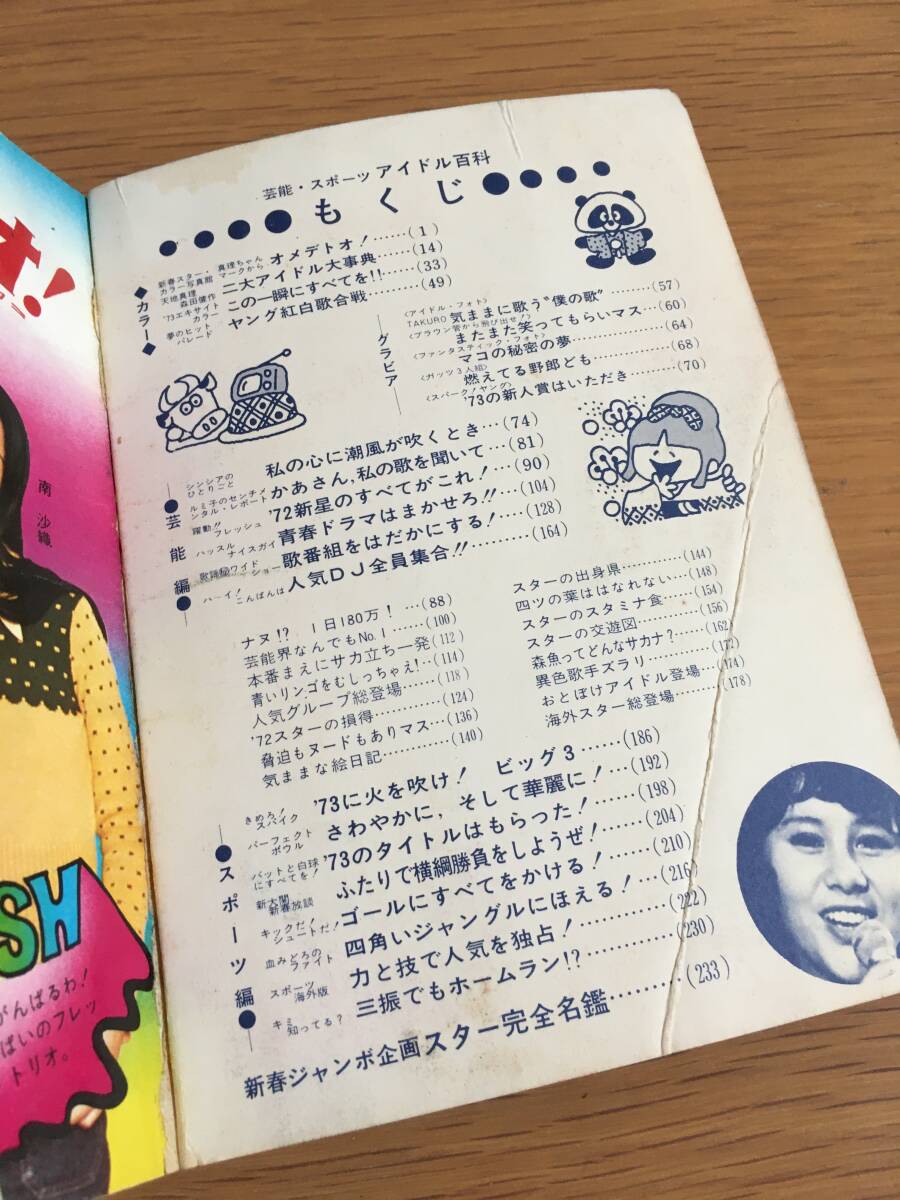 芸能・スポーツ アイドル百科
もくじ
◆カラー◆
新春スター・カラー写真館 真理ちゃんマークから オメデトオ!……(1)
天地真理 森田健作 二大アイドル大事典……(14)
'73エキサイトカラー この一瞬にすべてを!!……(33)
夢のヒットパレード ヤング紅白歌合戦……(49)
グラビア
〈アイドル・フォト〉
TAKURO 気ままに歌う“僕の歌”……(57)
〈ブラウン管から飛び出せ!〉
またまた笑ってもらいマス…(60)
〈ファンタスティック・フォト〉
マコの秘密の夢……(64)
〈ガッツ3人組〉
燃えてる野郎ども……(68)
〈スパーク!ヤング〉
'73の新人賞はいただき……(70)
●芸能編●
シンシアのひとりごと 私の心に潮風が吹くとき…(74)
ルミ子のセンチメンタル・レポート かあさん,私の歌を聞いて…(81)
躍動!!フレッシュ '72新星のすべてがこれ!…(90)
ハッスルナイスガイ 青春ドラマはまかせろ!!…(104)
歌謡秘ワイドショー 歌番組をはだかにする!…(128)
ハーイ!こんばんは 人気DJ全員集合!!……(164)
ナヌ!? 1日180万!…(88)
芸能界なんでもNo.1……(100)
本番まえにサカ立ち一発(112)
青いリンゴをむしっちゃえ!‥(114)
人気グループ総登場……(118)
'72スターの損得……(124)
脅迫もヌードもありマス…(136)
気ままな絵日記……(140)
スターの出身県……(144)
四ツの葉ははなれない…(148)
スターのスタミナ食……(154)
スターの交遊図……(156)
森魚ってどんなサカナ?……(162)
異色歌手ズラリ……(172)
おとぼけアイドル登場……(174)
海外スター総登場……(178)
●スポーツ編●
きめろ!スパイク '73に火を吹け! ビッグ3……(186)
パーフェクトボウル さわやかに,そして華麗に!…(192)
バットと白球にすべてを! '73のタイトルはもらった!……(198)
新大関新春放談 ふたりで横綱勝負をしようぜ!…(204)
キックだ!シュートだ! ゴールにすべてをかける!…(210)
血みどろのファイト 四角いジャングルにほえる!…(216)
スポーツ海外版 力と技で人気を独占!……(222)
キミ知ってる? 三振でもホームラン!?……(230)
新春ジャンボ企画スター完全名鑑………(233)
オ!
南 沙織
SH
がんばるわ!
ぱいのフレッ
トリオ。